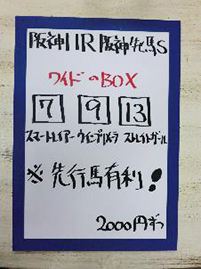 阪神11R阪神牝馬S
ワイドのBOX
7 9 13
スマートレイアー ウインプリメーラ ストレイトガール
※先行馬有利!
2000円ずつ